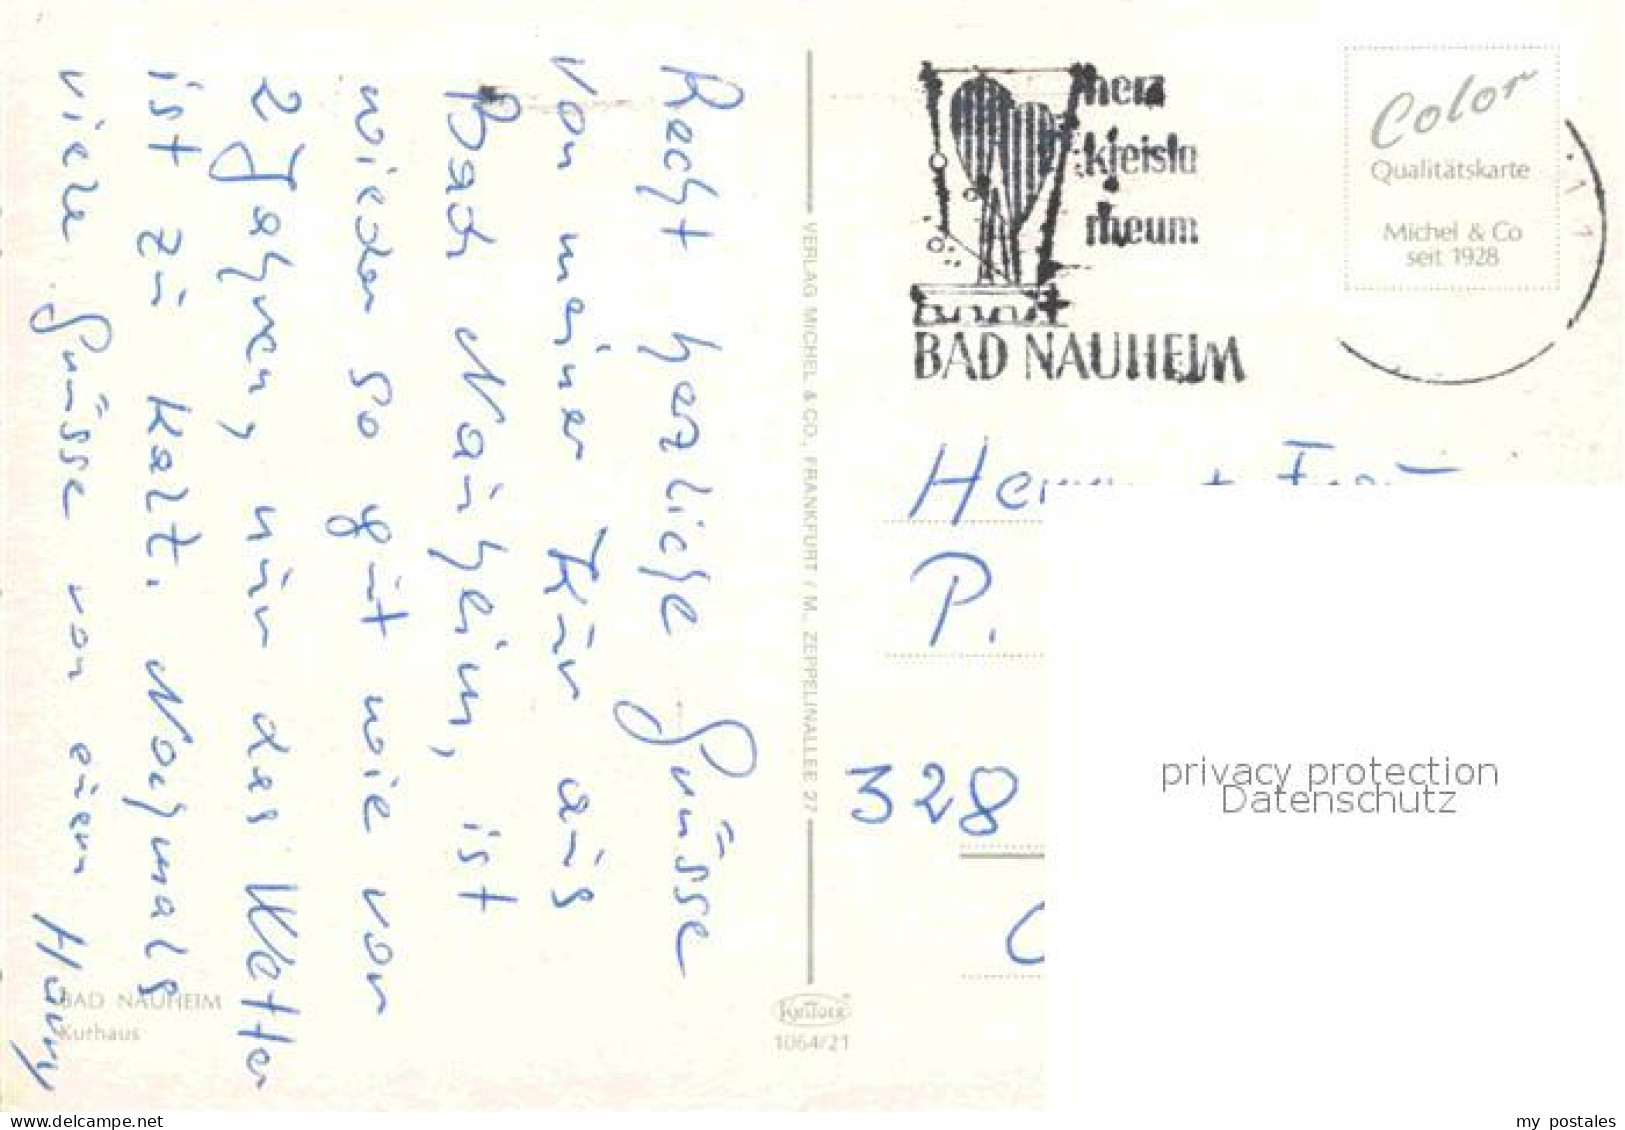 Recht herzliche Grüsse
von meiner Kur aus
Bad Nauheim, ist
wieder so gut wie von
2 Jahren, nur das Wetter
ist zu kalt. Nochmals
viele Grüsse von euerm
BAD NAUHEIM
Kurhaus
VERLAG MICHEL & CO., FRANKFURT / M., ZEPPELINALLEE 27
KRÜGER
1064/21
herz
kreisla
rheum
BAD NAUHEIM
Color
Qualitätskarte
Michel & Co
seit 1928
Herrn + Frau
P.
328
privacy protection
Datenschutz
my_postales
www.delcampe.net